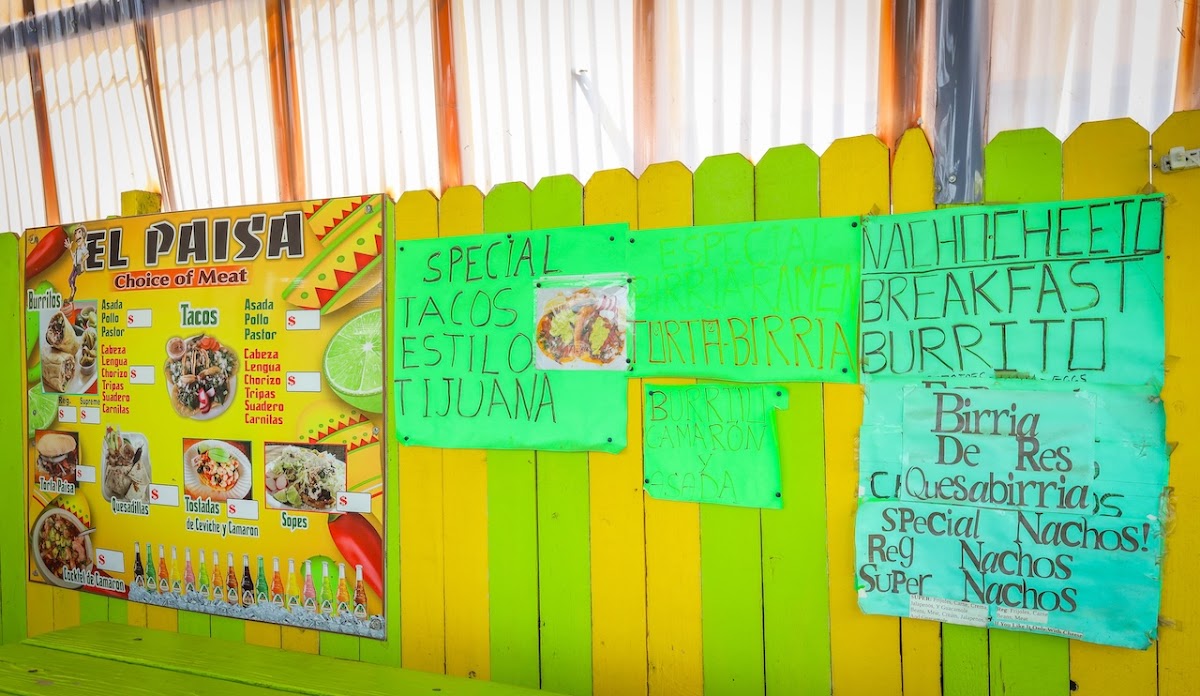 EL PAISA
Choice of Meat
Burritos
Asada
Pollo
Pastor
$
Cabeza
Lengua
Chorizo
Tripas
Suadero
Carnitas
$
Reg. Supreme
$ $
Tacos
Asada
Pollo
Pastor
$
Cabeza
Lengua
Chorizo
Tripas
Suadero
Carnitas
$
Torta Paisa
$
Quesadillas
$
Tostadas
de Ceviche y Camaron
$
Sopes
$
Cocktel de Camaron
$
SPECIAL
TACOS
ESTILO
TIJUANA
ESPECIAL
BIRRIA-RAMEN
TORTA-BIRRIA
BURRITO
CAMARÓN
Y
ASADA
NACHOCHEETO
BREAKFAST
BURRITO
Birria
De Res,
Quesabirria,
SPecial Nachos!
Reg Nachos
SuPer Nachos